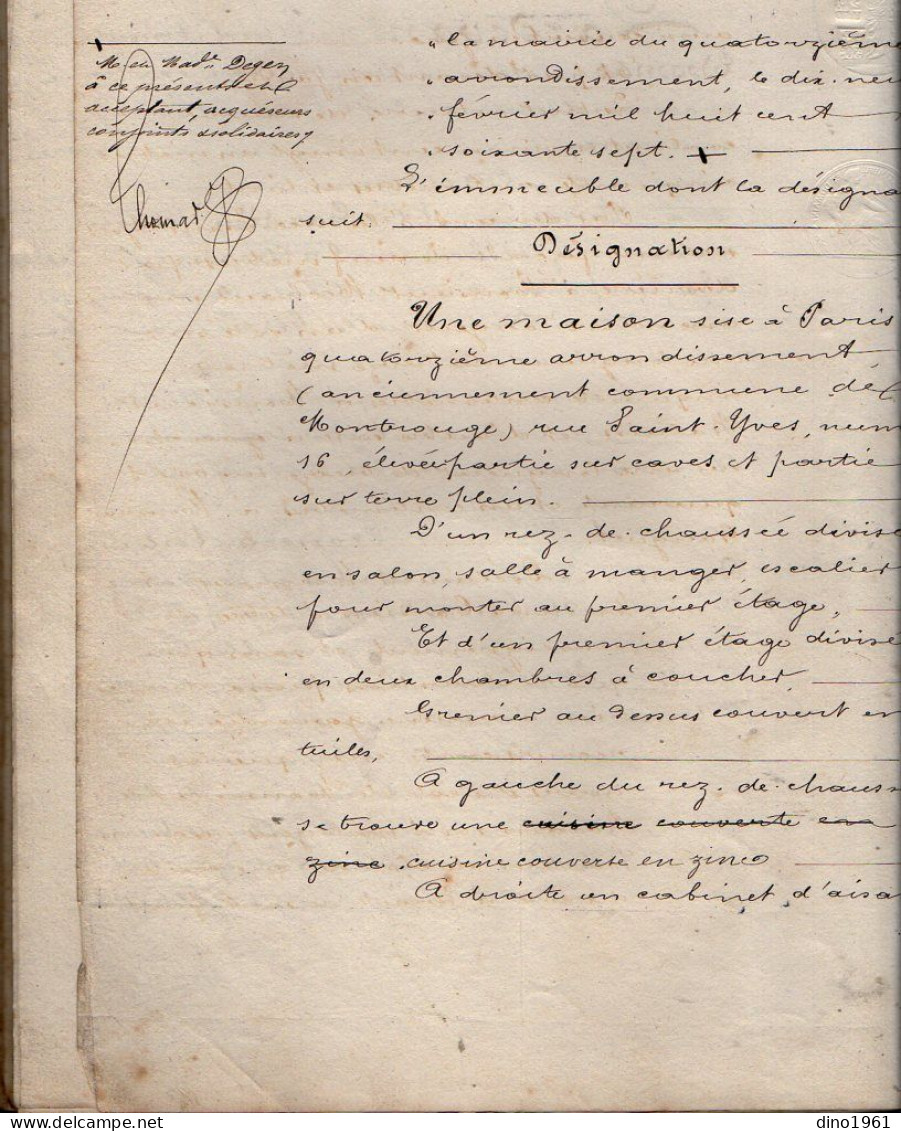 M. et Mad.e Degen
à ce présents et
acceptant, acquéreurs
conjoints & solidaires
Thomas
"la mairie du quatorzième
"arrondissement, le dix neu
"février mil huit cent
"soixante sept. +
L'immeuble dont la désigna
suit.
Désignation
Une maison sise à Paris
quatorzième arrondissement
(anciennement commune de
Montrouge) rue Saint-Yves, num
16, élevée partie sur caves et partie
sur terre plein.
D'un rez-de-chaussée divisé
en salon, salle à manger, escalier
pour monter au premier étage,
Et d'un premier étage divisé
en deux chambres à coucher
Grenier au dessus couvert en
tuiles,
A gauche du rez-de-chauss
se trouve une cuisine couverte en
zinc. cuisine couverte en zinc
A droite un cabinet d'aisa
delcampe.net
dino1961